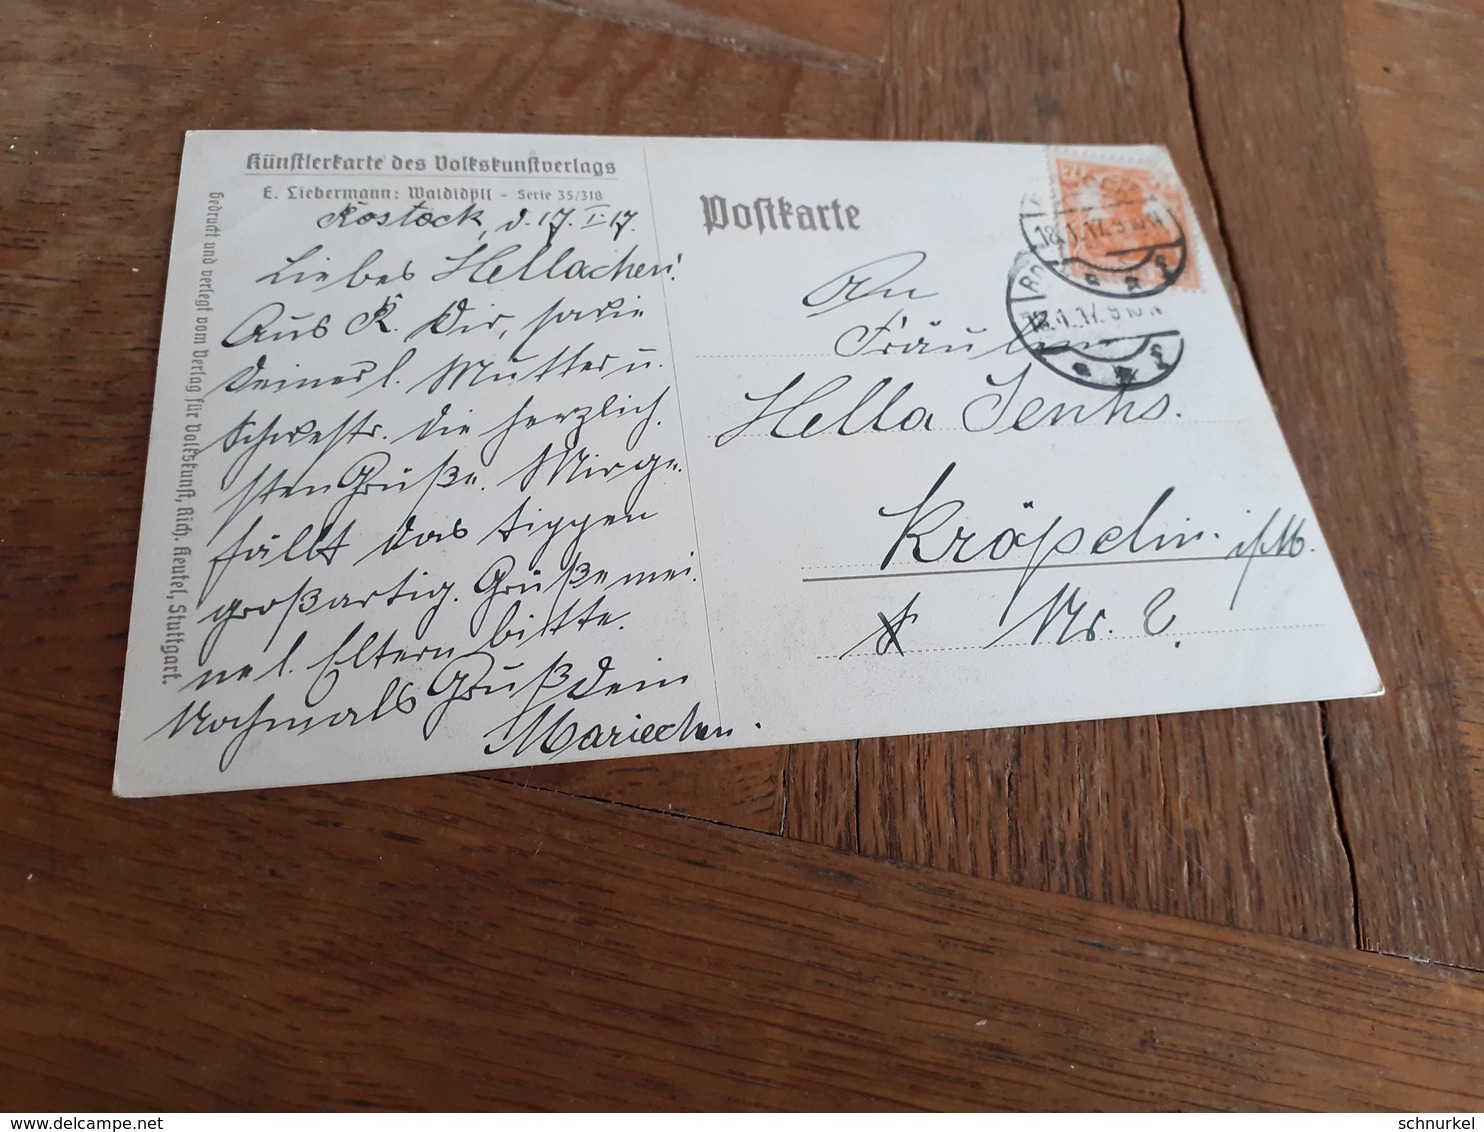 Künstlerkarte des Volkskunstverlags
E. Liebermann: Waldidyll - Serie 35/318
Gedruckt und verlegt vom Verlag für Volkskunst, Rich. Keutel, Stuttgart.
Rostock, d. 17. I. 17.
Liebes Hellachen!
Aus R. Dir, sowie
Deiner l. Mutter u.
Schwestr. die herzlich.
sten Grüße. Mir ge.
fällt das tippen
großartig. Grüße mei.
ne l. Eltern bitte.
Nochmals Gruß Dein
Mariechen.
Postkarte
18.1.17.9-10N
18.1.17.9-10N
An
Fräulein
Hella Jenhs.
Kröpelin. i/M.
Nr. 2.
schnurkel